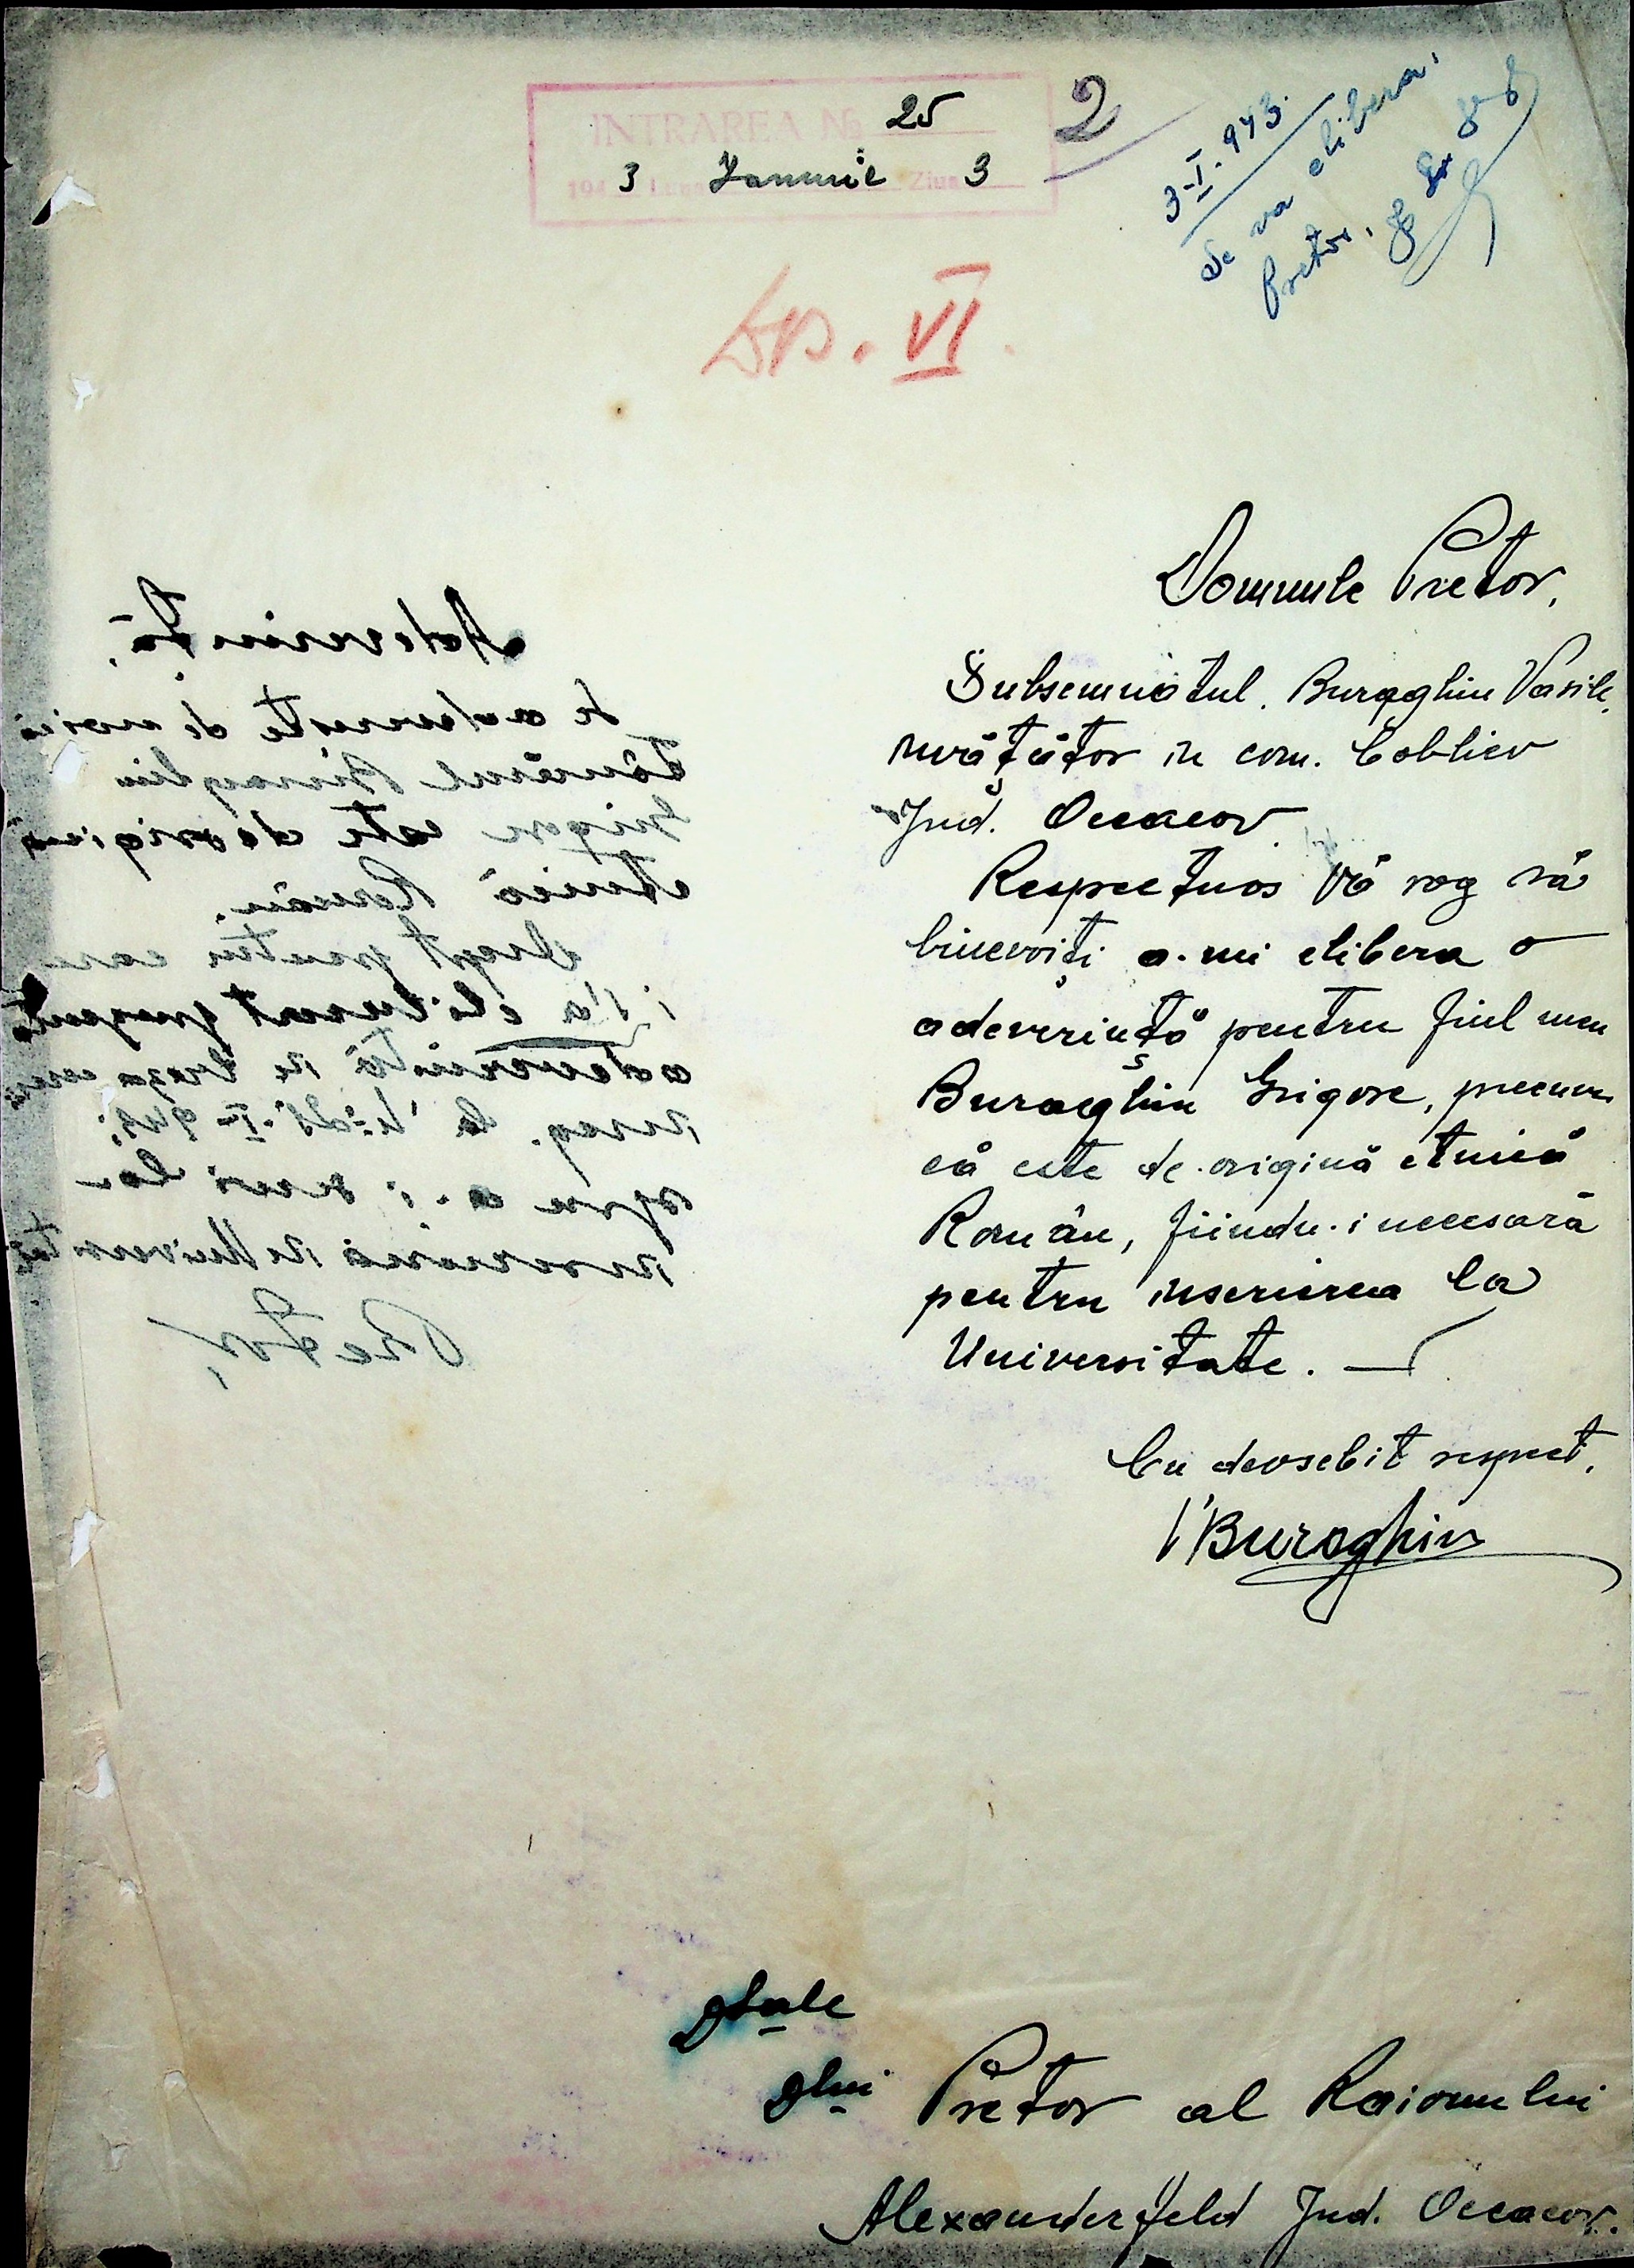 INTRAREA No 25
194 3 Luna Ianuarie Ziua 3
2
3-I.943.
Se va elibera.
Pretor,
VI.
Domnule Pretor,
Subsemnatul. Buraghiu Vasile,
învățător în com. Cobliev
Jud. Oceacov
Respectuos Vă rog să
binevoiți a-mi elibera o
adeverință pentru fiul meu
Buraghiu Grigore, precum
că este de origină etnică
Român, fiindu-i necesară
pentru înscrierea la
Universitate.
Cu deosebit respect,
V Buraghiu
Adeverință.
Se adevereste de noi că
tânărul Buraghiu
Grigore este de origină
etnică Român.
Drept pentru care
i s'a eliberat prezenta
adeverință
spre a-i servi la
Pretor,
Dsale
Dlui Pretor al Raionului
Alexanderfeld Jud. Oceacov.